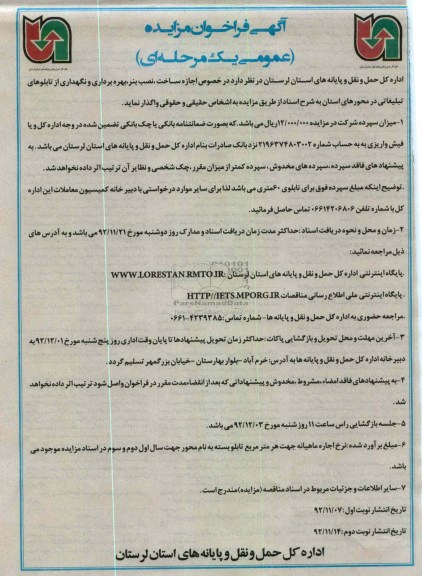 آگهی فراخوان مزایده
(عمومی یک مرحله‌ای)
اداره کل حمل و نقل و پایانه های استان لرستان در نظر دارد در خصوص اجازه ساخت ،نصب بنر،بهره برداری و نگهداری از تابلوهای
تبلیغاتی در محورهای استان به شرح اسناد از طریق مزایده به اشخاص حقیقی و حقوقی واگذار نماید.
۱-میزان سپرده شرکت در مزایده ۱۲/۰۰۰/۰۰۰ریال می باشد.که بصورت ضمانتنامه بانکی یا چک بانکی تضمین شده در وجه اداره کل و یا
فیش واریزی به به حساب شماره ۲۱۹۶۳۷۴۸۰۳۰۰۲ نزد بانک صادرات بنام اداره کل حمل و نقل و پایانه های استان لرستان می باشد. به
پیشنهاد های فاقد سپرده ،سپرده های مخدوش ، سپرده کمتر از میزان مقرر،چک شخصی و نظایر آن ترتیب اثر داده نخواهد شد.
.توضیح اینکه مبلغ سپرده فوق برای تابلوی ۶۰متری می باشد لذا برای سایر موارد درخواستی با دبیر خانه کمیسیون معاملات این اداره
کل با شماره تلفن ۰۶۶۱۴۲۰۶۸۰۶ تماس حاصل فرمائید.
۲-زمان و محل و نحوه دریافت اسناد :حداکثر مدت زمان دریافت اسناد و مدارک روز دوشنبه مورخ ۹۲/۱۱/۲۱ می باشد و به آدرس های
ذیل مراجعه نمائید:
.پایگاه اینترنتی اداره کل حمل و نقل و پایانه های استان لرستان :WWW.LORESTAN.RMTO.IR
. پایگاه اینترنتی ملی اطلاع رسانی مناقصات HTTP//IETS.MPORG.IR
.مراجعه حضوری به اداره کل حمل و نقل و پایانه ها- شماره تماس :۴۲۳۹۳۸۵-۰۶۶۱
۳-آخرین مهلت و محل تحویل و بازگشایی پاکات :حداکثر زمان تحویل پیشنهادها تا پایان وقت اداری روز پنج شنبه مورخ ۹۲/۱۲/۰۱ به
دبیرخانه اداره کل حمل و نقل و پایانه ها به آدرس: خرم آباد -بلوار بهارستان -خیابان بزرگمهر تسلیم گردد.
۴-به پیشنهادهای فاقد امضاء ،مشروط ،مخدوش و پیشنهاداتی که بعد از انقضاء مدت مقرر در فراخوان واصل شود ترتیب اثر داده نخواهد
شد.
۵-جلسه بازگشایی راس ساعت ۱۱ روز شنبه مورخ ۹۲/۱۲/۰۳ می باشد.
۶-مبلغ بر آورد شده :نرخ اجاره ماهیانه جهت هر متر مربع تابلو بسته به نام محور جهت سال اول دوم و سوم در اسناد مزایده موجود می
باشد.
۷-سایر اطلاعات و جزئیات مربوط در اسناد مناقصه (مزایده) مندرج است.
تاریخ انتشار نوبت اول :۹۲/۱۱/۰۷
تاریخ انتشار نوبت دوم :۹۲/۱۱/۱۴
اداره کل حمل و نقل و پایانه های استان لرستان